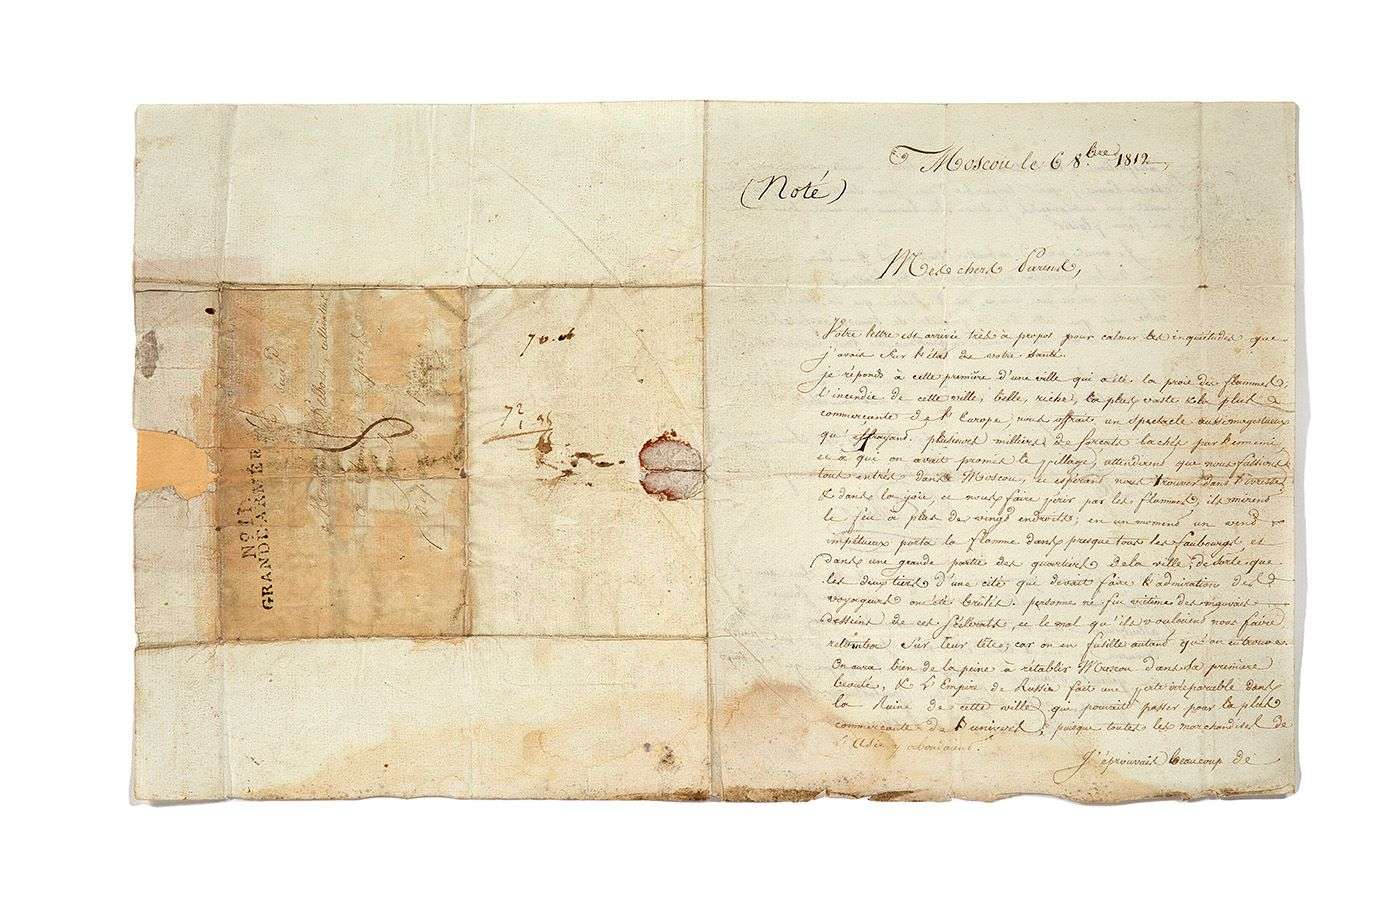 No. 11.
GRANDE ARMÉE
(Noté)
Moscou le 6 8.bre 1812
Mes chers Parens,
Votre lettre est arrivée très à propos pour calmer les inquiétudes que
j'avais sur l'état de votre santé.
je réponds à cette première d'une ville qui a été la proie des flammes;
l'incendie de cette ville, belle, riche, la plus vaste & la plus
commerçante de l'Europe, nous offrait un spectacle aussi magestueux
qu'effrayant. plusieurs milliers de forcats lachés par l'ennemi
et à qui on avait promis le pillage, attendirent que nous fussions
tous entrés dans Moscou, et espérant nous trouver dans l'ivresse
& dans la joie et nous faire périr par les flammes, ils mirent
le feu à plus de vingt endroits; en un moment un vent
impétueux porta la flamme dans presque tous les faubourgs et
dans une grande partie des quartiers de la ville; de sorte que
les deux tiers d'une cité qui devait faire l'admiration des
voyageurs ont étés brûlés. personne ne fut victime des mauvais
desseins de ces scélérats, et le mal qu'ils voulaient nous faire
retombe sur leur tête; car on en fusille autant qu'on en trouve.
On aura bien de la peine à rétablir Moscou dans sa première
beauté, & l'Empire de Russie fait une perte irréparable dans
la Ruine de cette ville, qui pouvait passer pour la plus
commercante de l'univers, puisque toutes les marchandises de
l'Asie y abondaient.
J'éprouvais beaucoup de